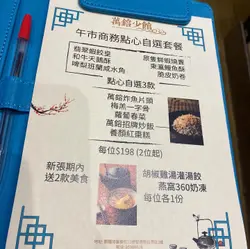 萬鎔少館
午市商務點心自選套餐
翡翠蝦餃皇
原隻鮮蝦燒賣
和牛天鵝酥
東瀛鰻魚酥
啤梨班蘭咸水角
脆皮奶卷
點心自選3款
萬鎔炸魚片頭
梅羔一字骨
蘿蔔春菜
萬鎔招牌炒飯
養顏紅棗糕
每位$198 (2位起)
新張期內
送2款美食
胡椒雞湯灌湯餃
燕窩360奶凍
每位各1份